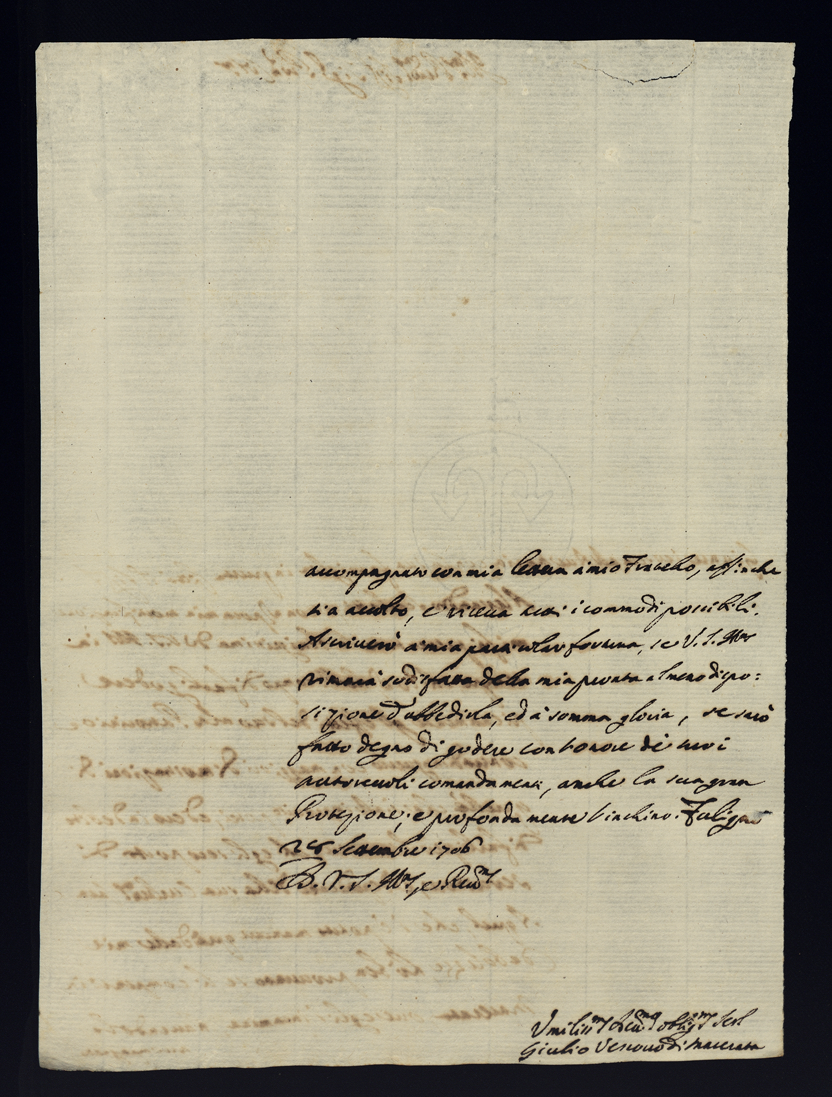 accompagnato con mia lettera à mio Fratello, affinche
sia accolto, e riceva tutti i commodi possibili.
Ascriverò à mia particolar fortuna, se V. S. Ill.ma
rimarrà sodisfatta della mia pronta almeno dispo:
sizione d'ubbedirla, ed à somma gloria, se sarò
fatto degno di godere con l'onore de' suoi
autorevoli comandamenti, anche la sua gran
Protezione; e profondamente l'inchino. Fuligno
28 Settembre 1706
D. V. S. Ill.ma, e Rev.ma
Umiliss.mo Dev.mo Oblig.mo Ser.
Giulio Vescovo di Macerata